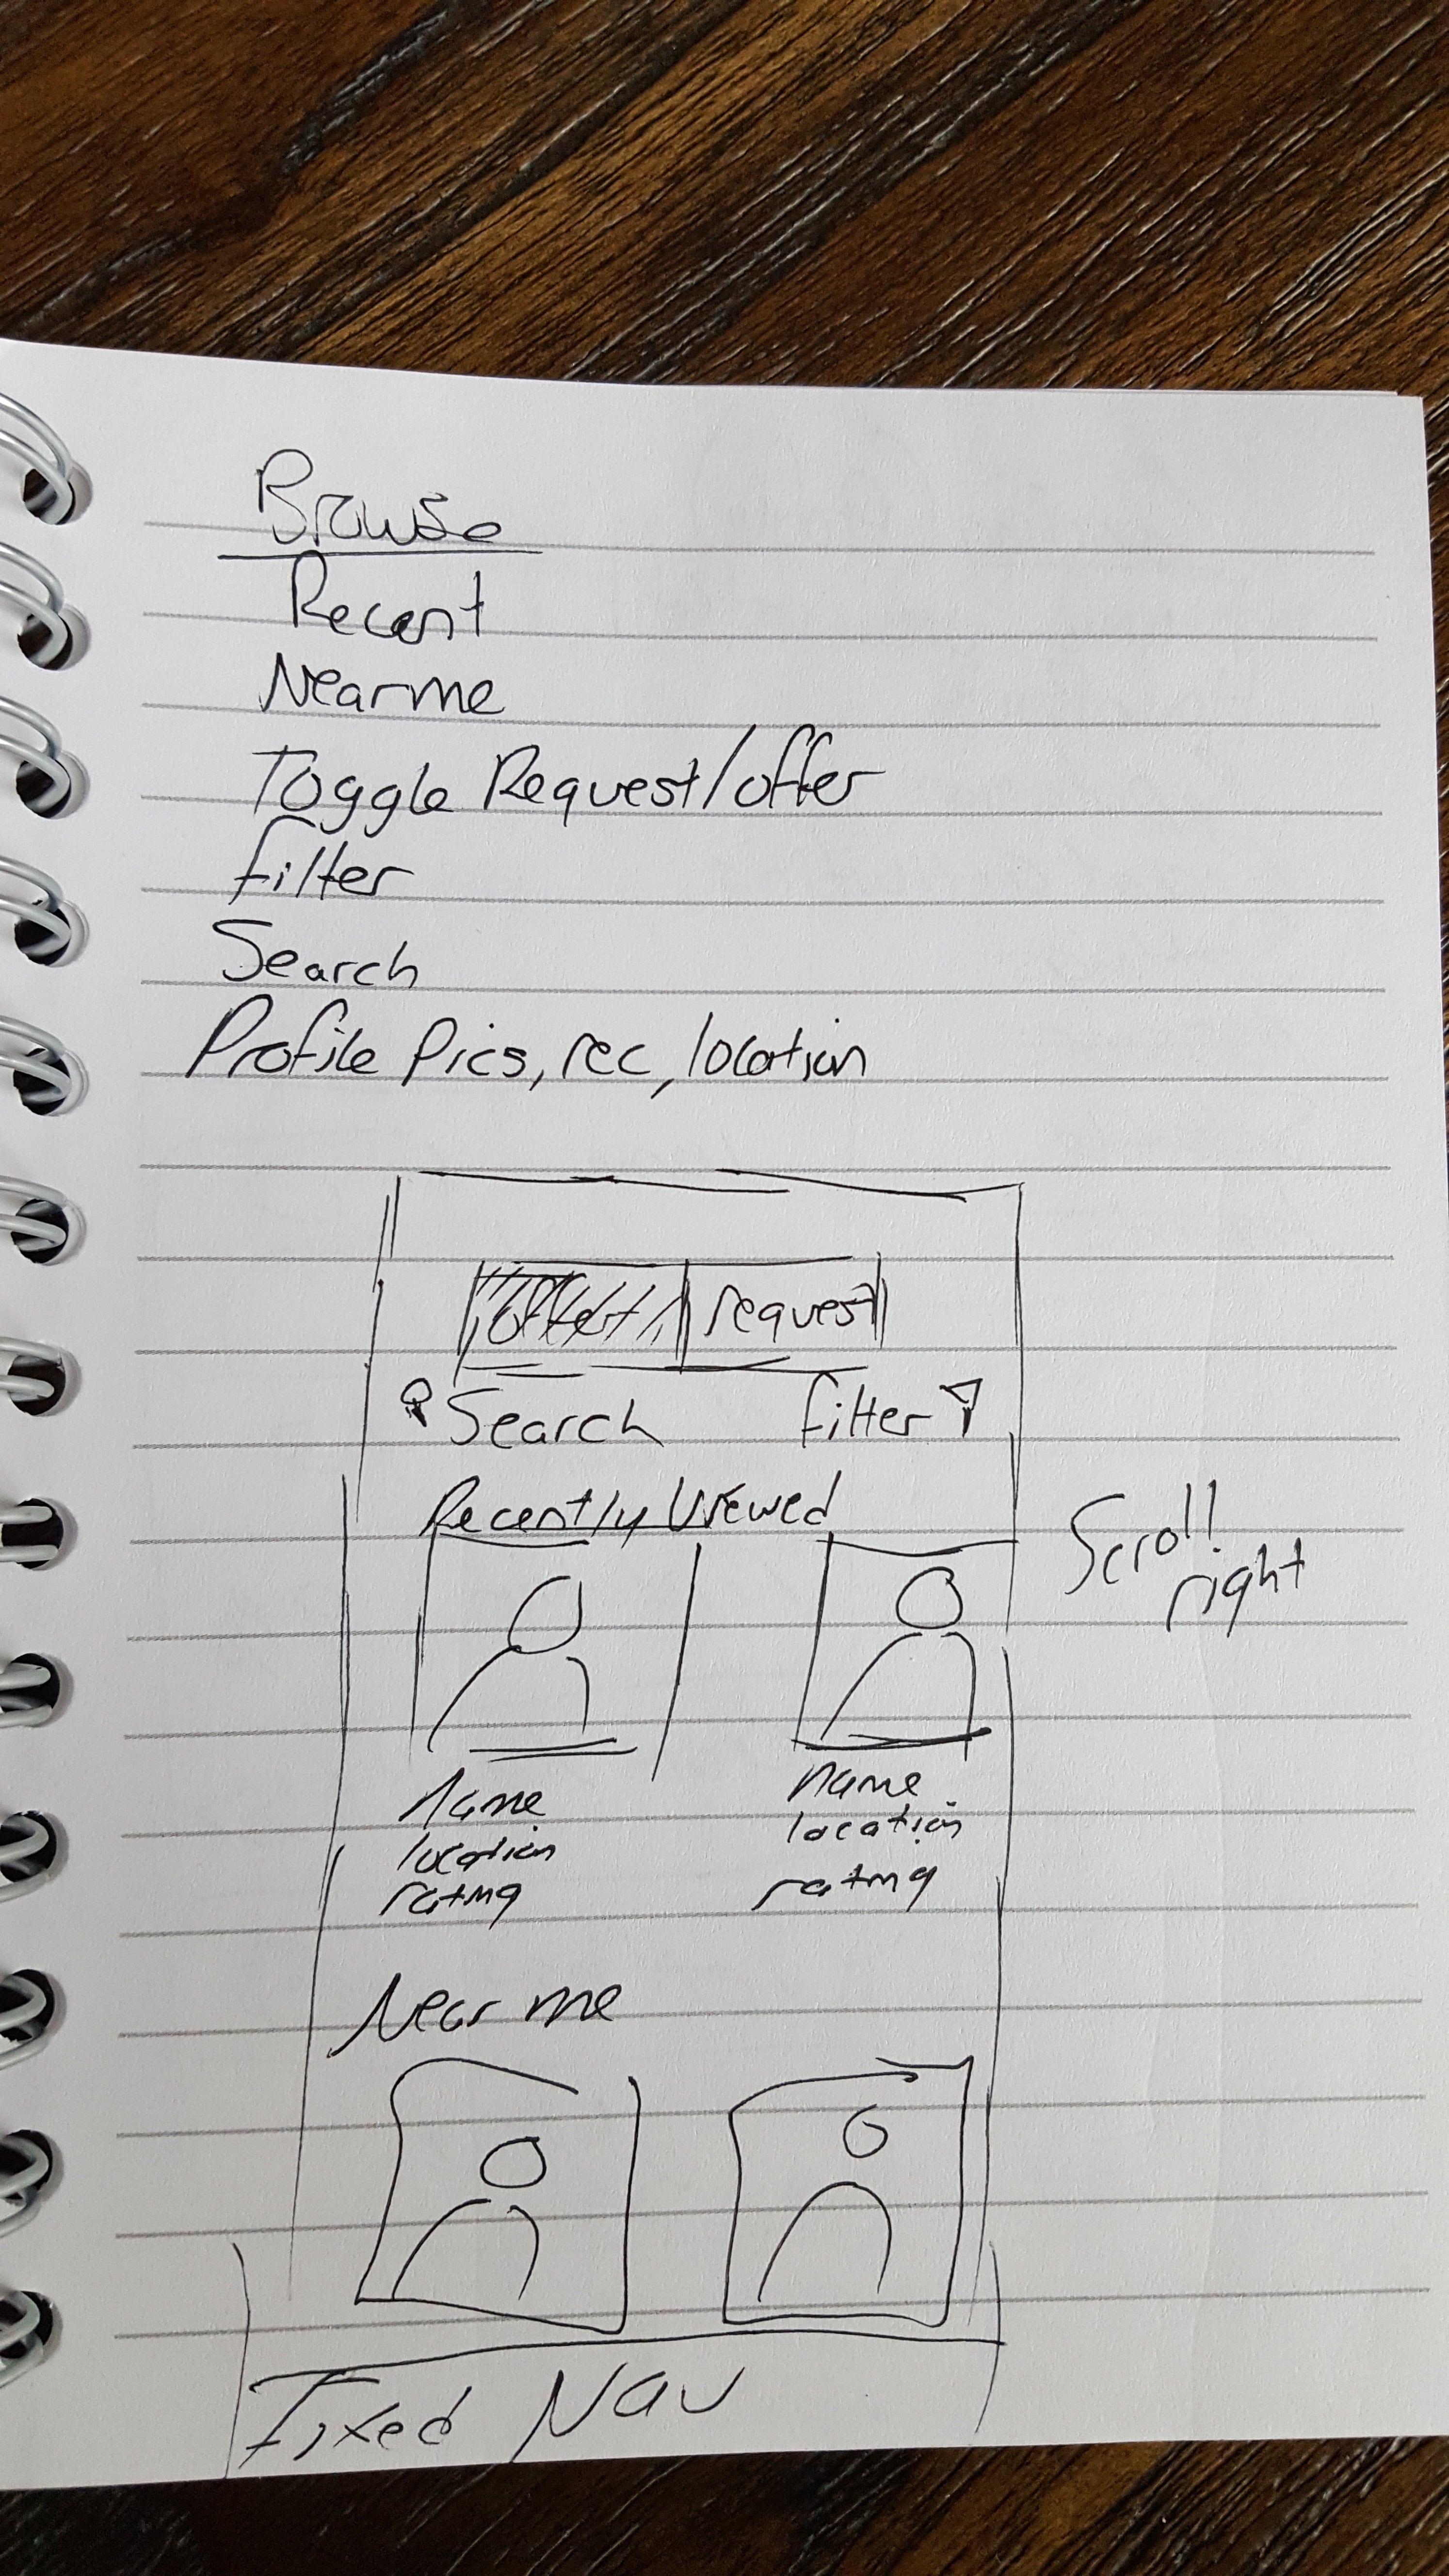 Browse
Recent
Near me
Toggle Request/offer
filter
Search
Profile Pics, rec, location
request
Search filter
Recently Viewed
Scroll
right
Name name
location location
rating rating
Near me
Fixed Nav